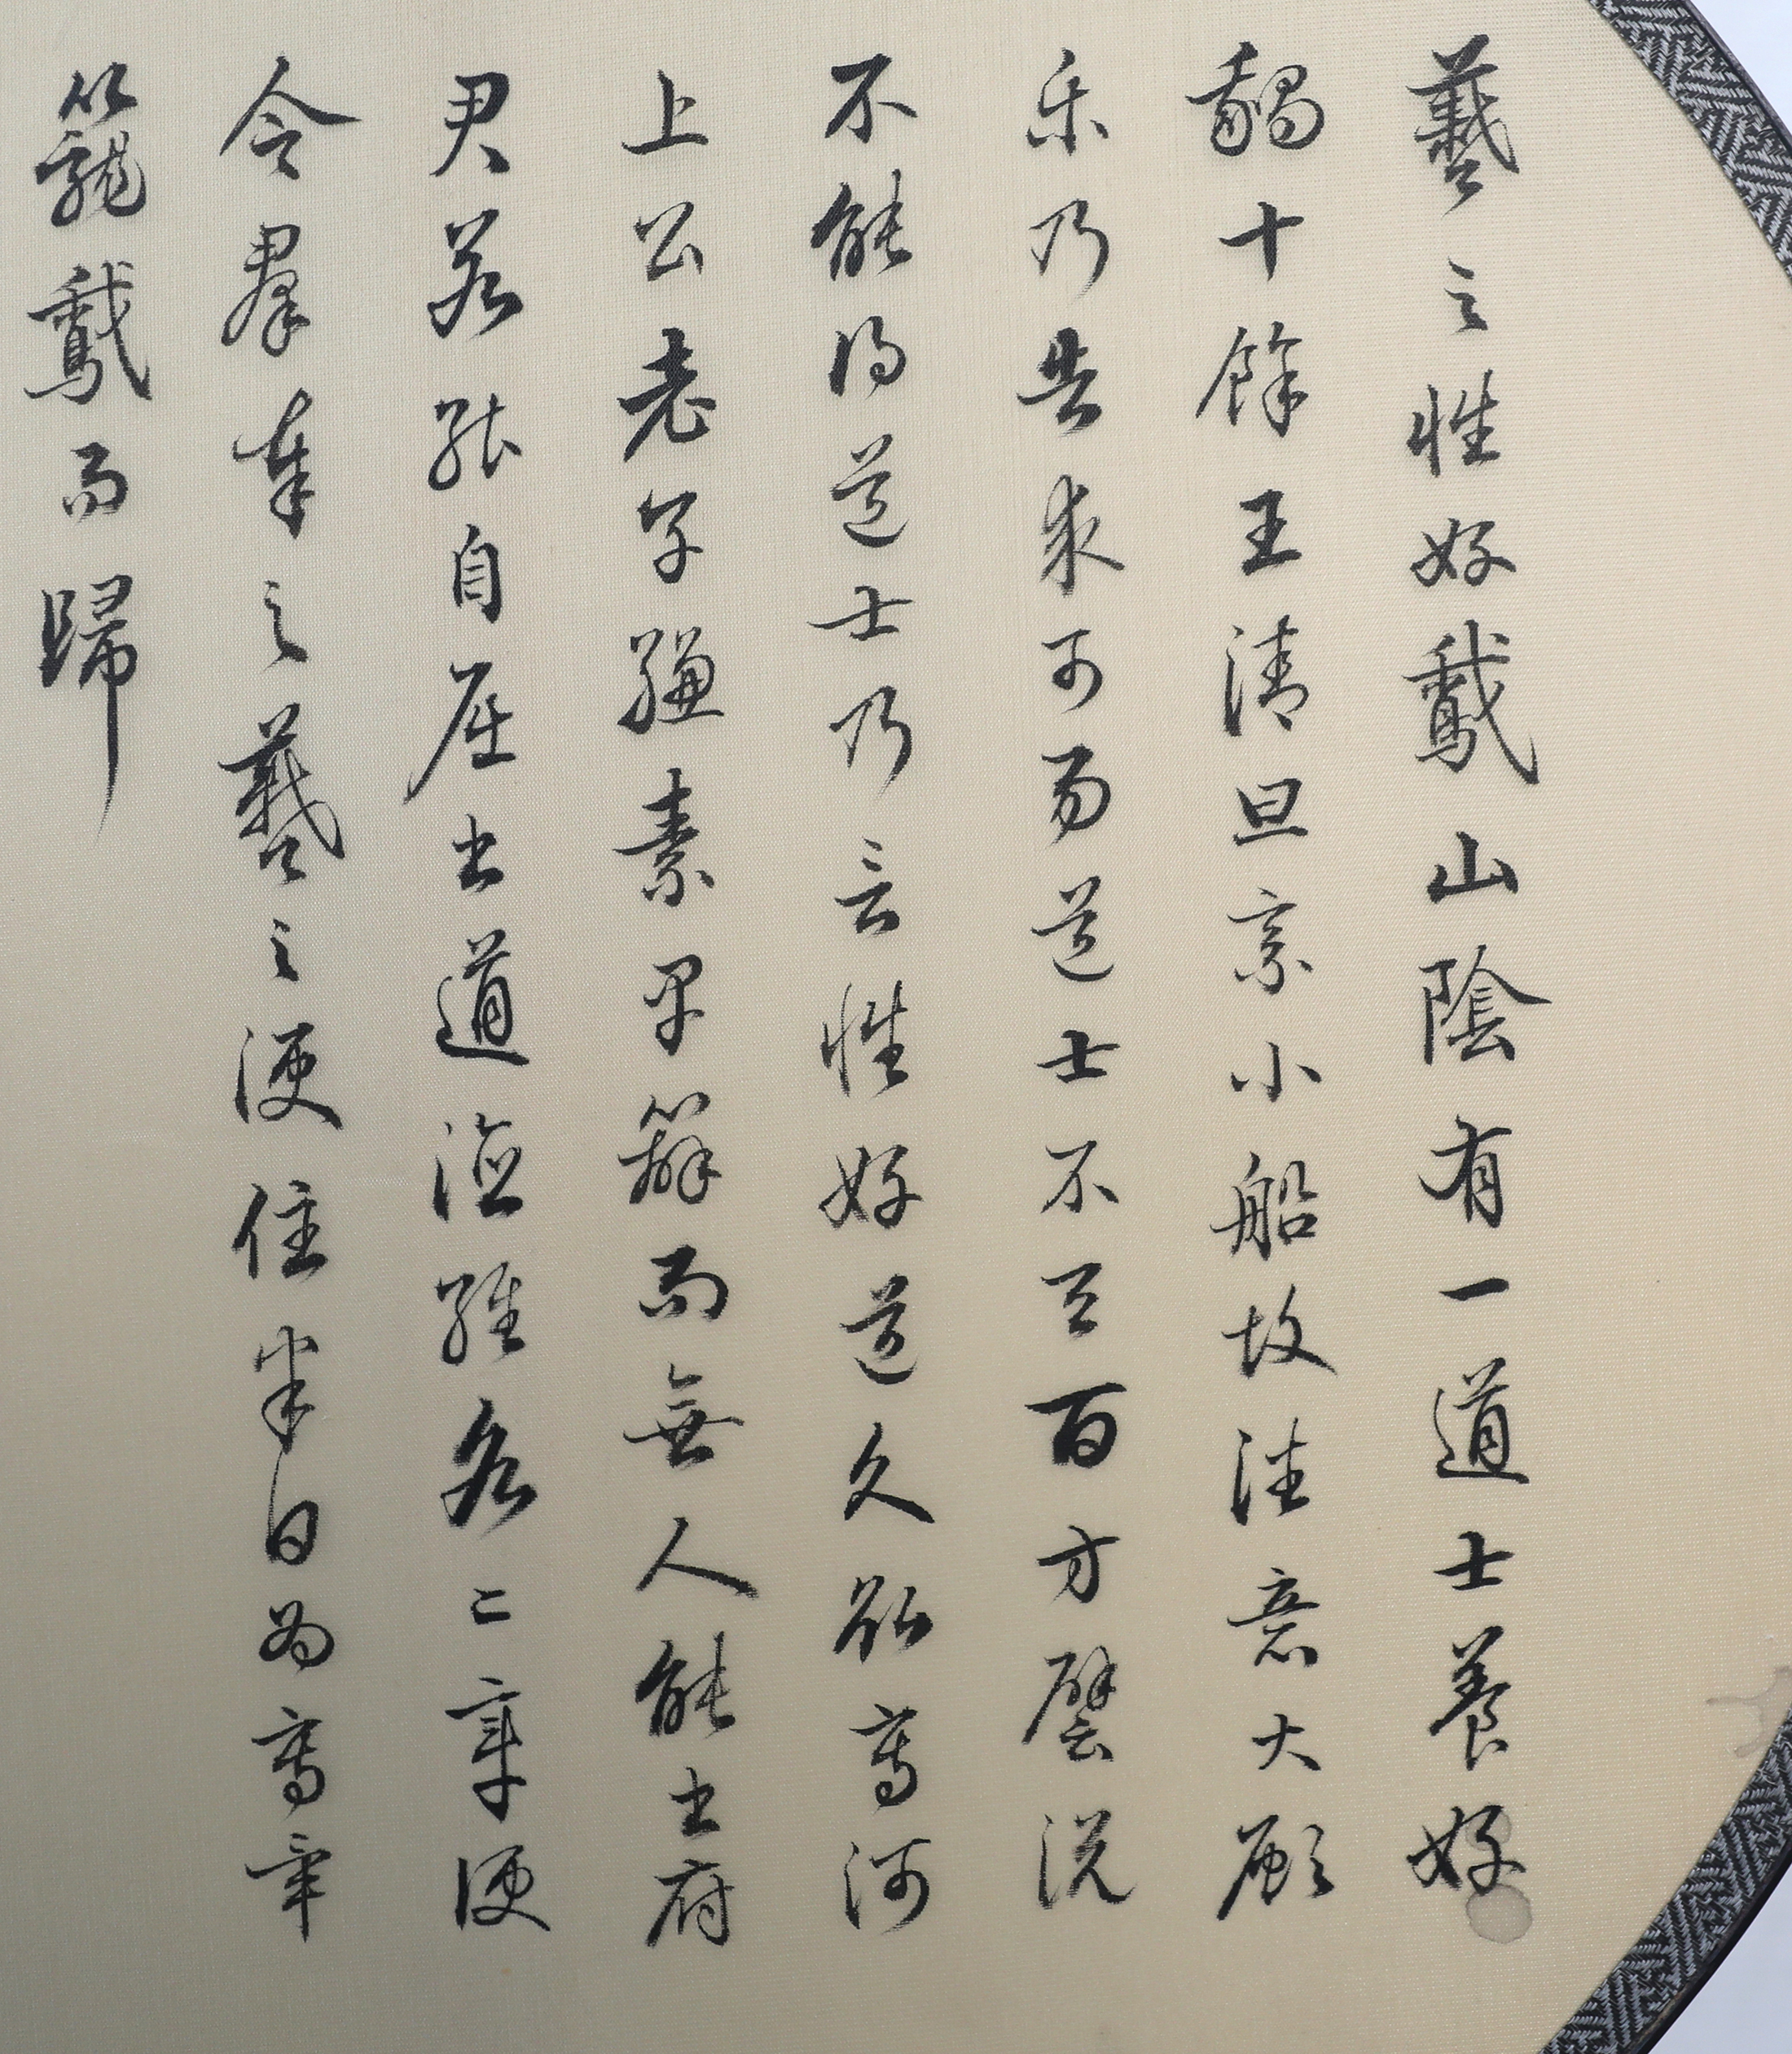 羲之性好鵞山陰有一道士養好
鵝十餘王清旦乘小船故往意大願
樂乃告求市易道士不与百方譬説
不能得道士乃言性好道久欲寫河
上公老子縑素早辦而無人能書府
君若能自屈書道德經各二章便
合羣奉之羲之便住半日為寫畢
籠鵞而歸